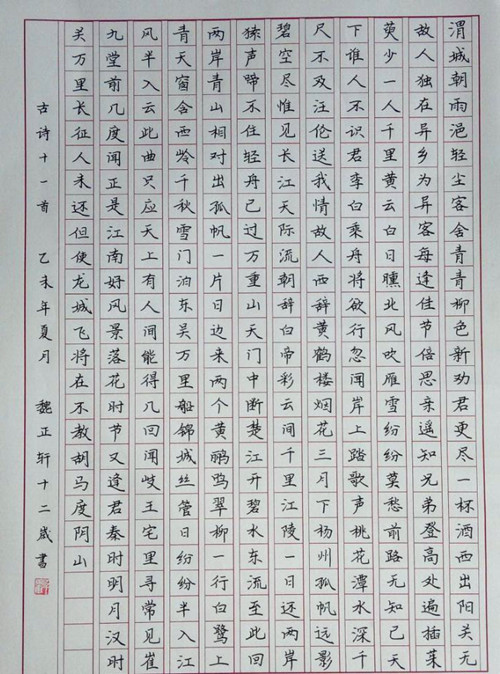 渭城朝雨浥轻尘客舍青青柳色新劝君更尽一杯酒西出阳关无
故人独在异乡为异客每逢佳节倍思亲遥知兄弟登高处遍插茱
萸少一人千里黄云白日曛北风吹雁雪纷纷莫愁前路无知己天
下谁人不识君李白乘舟将欲行忽闻岸上踏歌声桃花潭水深千
尺不及汪伦送我情故人西辞黄鹤楼烟花三月下杨州孤帆远影
碧空尽惟见长江天际流朝辞白帝彩云间千里江陵一日还两岸
猿声啼不住轻舟已过万重山天门中断楚江开碧水东流至此回
两岸青山相对出孤帆一片日边来两个黄鹂鸣翠柳一行白鹭上
青天窗含西岭千秋雪门泊东吴万里船锦城丝管日纷纷半入江
风半入云此曲只应天上有人间能得几回闻岐王宅里寻常见崔
九堂前几度闻正是江南好风景落花时节又逢君秦时明月汉时
关万里长征人未还但使龙城飞将在不教胡马度阴山
古诗十一首 乙未年夏月 魏正轩十二岁书